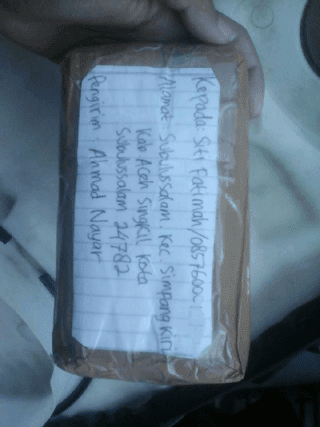 Kepada: Siti Fatimah/0857600
Alamat: Subulussalam Kec. Simpang Kiri
Kab Aceh Singkil Kota
Subulussalam 24782
Pengirim: Ahmad Nayar